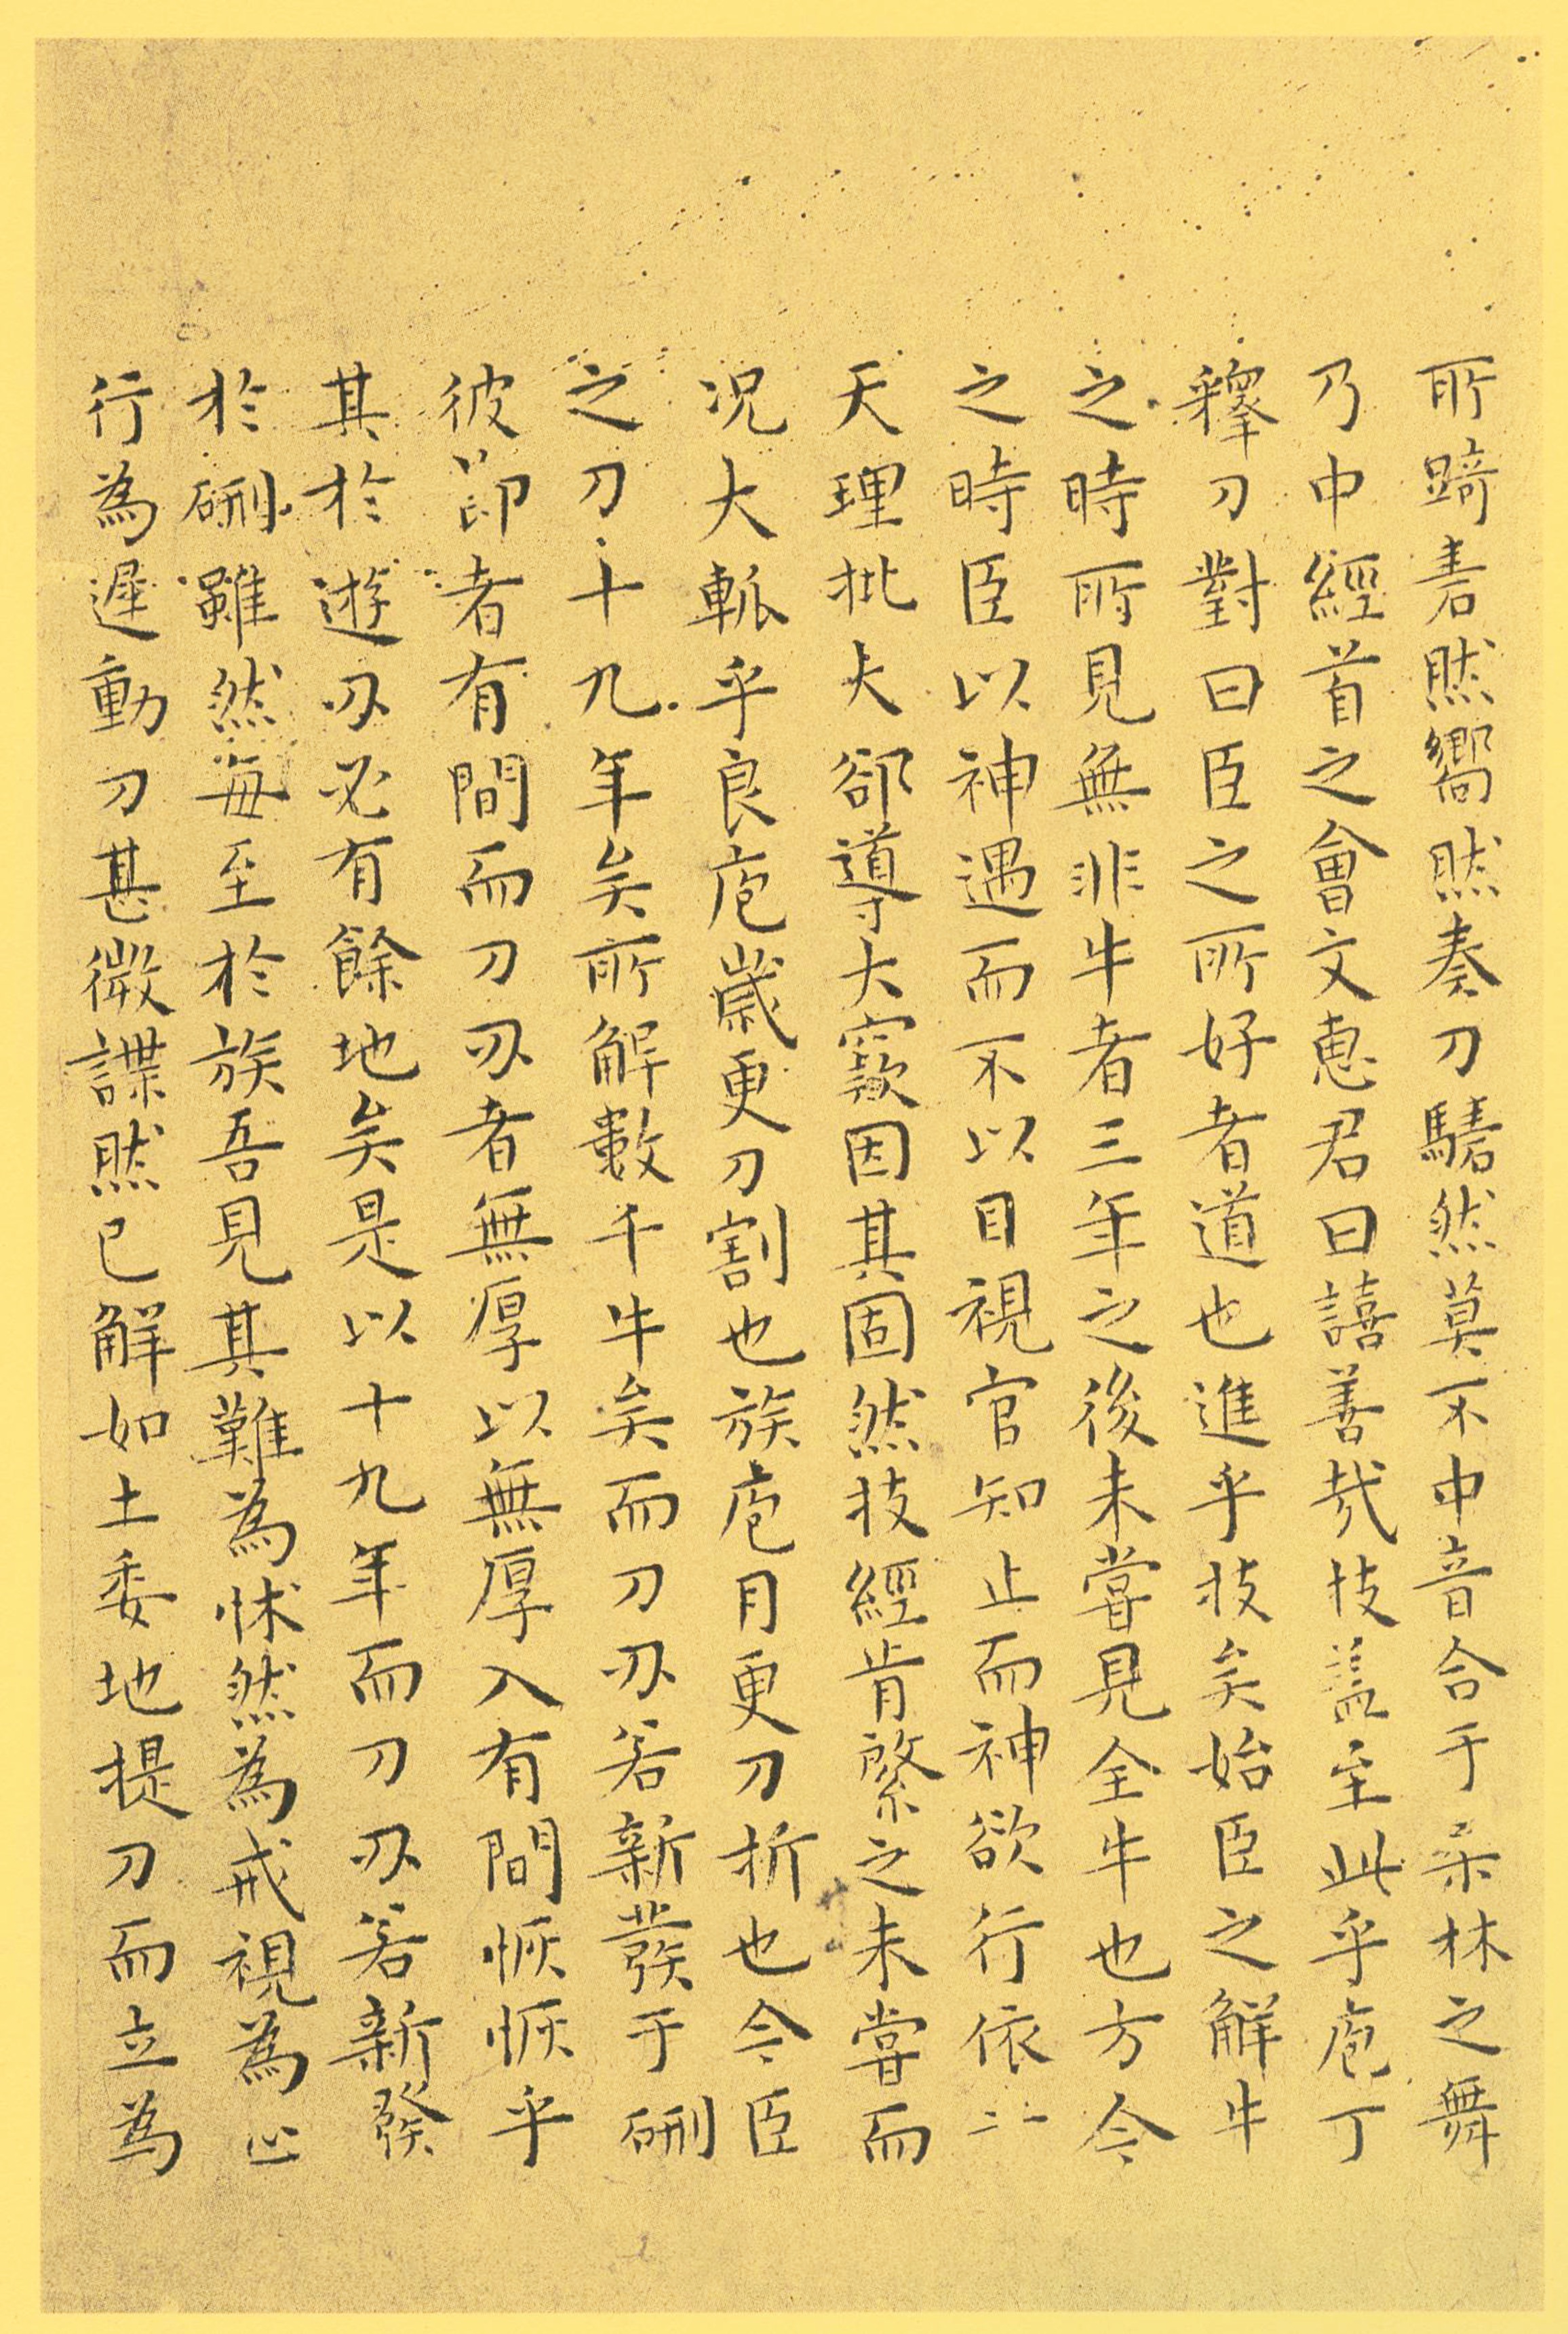 所踦砉然嚮然奏刀騞然莫不中音合于桑林之舞
乃中經首之會文惠君曰譆善哉技盖至此乎庖丁
釋刀對曰臣之所好者道也進乎技矣始臣之解牛
之時所見無非牛者三年之後未嘗見全牛也方今
之時臣以神遇而不以目視官知止而神欲行依乎
天理批大郤導大窾因其固然技經肯綮之未嘗而
况大軱乎良庖歲更刀割也族庖月更刀折也今臣
之刀十九年矣所解數千牛矣而刀刃若新發于硎
彼節者有間而刀刃者無厚以無厚入有間恢恢乎
其於遊刃必有餘地矣是以十九年而刀刃若新發
於硎雖然每至於族吾見其難為怵然為戒視為止
行為遲動刀甚微謋然已解如土委地提刀而立為